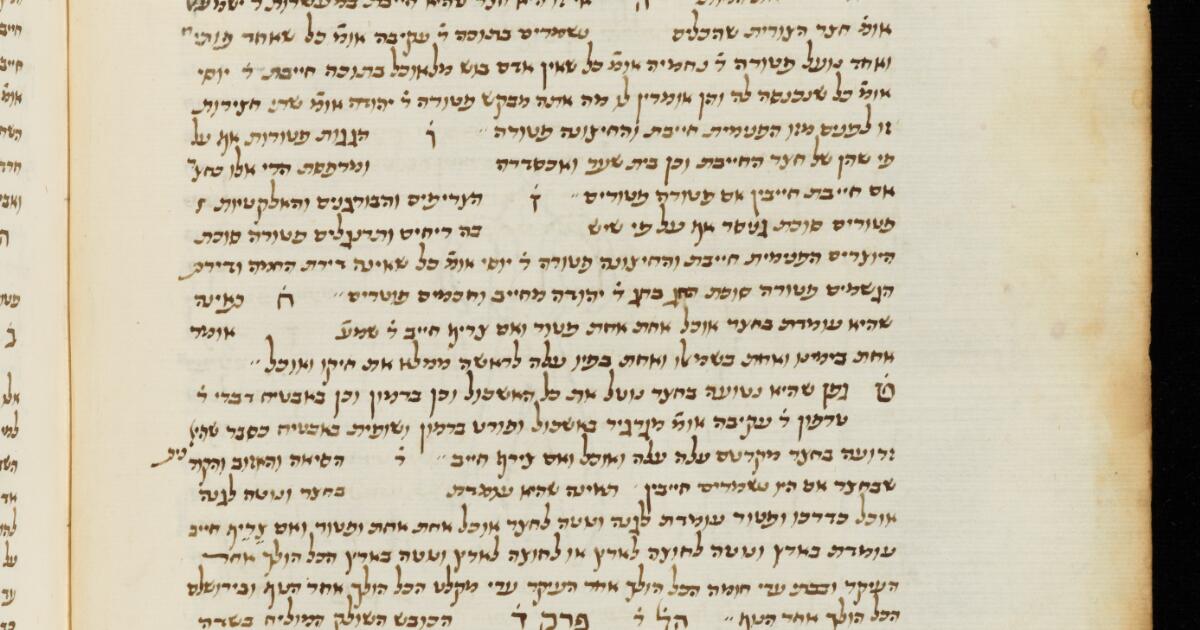 איזו היא חצר שהיא חייבת במעשרות ר׳ ישמעאל
אומ׳ חצר הצורית שהכלים נשמרים בתוכה ר׳ עקיבה אומ׳ כל שאחד פותח
ואחד נועל פטורה ר׳ נחמיה אומ׳ כל שאין אדם בוש מלאוכל בתוכה חייבת ר׳ יוסי
אומ׳ כל שנכנסה לה והן אומרין לו מה אתה מבקש פטורה ר׳ יהודה אומ׳ שתי חצירות
זו לפנים מזו הפנימית חייבת והחיצונה פטורה ׳׳ ו הגגות פטורות אף על
פי שהן של חצר החייבת וכן בית שער ואכסדרה ומרפסת הרי אלו כחצר
אם חייבת חייבין אם פטורה פטורים ׳׳ ז הצריפים והבורגנים והאלקטיות
פטורים סוכת גניסר אף על פי שיש בה ריחים ותרנגלים פטורה סוכת
היוצרים הפנימית חייבת והחיצונה פטורה ר׳ יוסי אומ׳ כל שאינה דירת החמה ודירת
הגשמים פטורה סוכת החג בחג ר׳ יהודה מחייב וחכמים פוטרים ׳׳ ח תאינה
שהיא עומדת בחצר אוכל אחת אחת פטור ואם צירף חייב ר׳ שמע׳ אומר
אחת בימינו ואחת בשמאלו ואחת בפיו עלה לראשה ממלא את חיקו ואוכל ׳׳
ט גפן שהיא נטועה בחצר נוטל את כל האשכול וכן ברמון וכן באבטיח דברי ר׳
טרפון ר׳ עקיבה אומ׳ מגרגיר באשכול ופורט ברמון ושופית באבטיח כסבר שהיא
זרועה בחצר מקרטם עלה עלה ואוכל ואם צירף חייב ׳׳ י הסיאה והאזוב והקורנית
שבחצר אם היו נשמרים חייבין תאינה שהיא עומדת בחצר ונוטה לגנה
אוכל כדרכו ופטור עומדת לגנה ונוטה לחצר אוכל אחת אחת ופטור ואם צירף חייב
עומדת בארץ ונוטה לחוצה לארץ או לחוצה לארץ ונוטה בארץ הכל הולך אחר
העיקר ובבתי ערי חומה הכל הולך אחר העיקר ערי מקלט הכל הולך אחר הנוף ובירושלם
הכל הולך אחר הנוף ׳׳ הל׳ י׳ פרק ד הכובש השולק המוליח בשדה